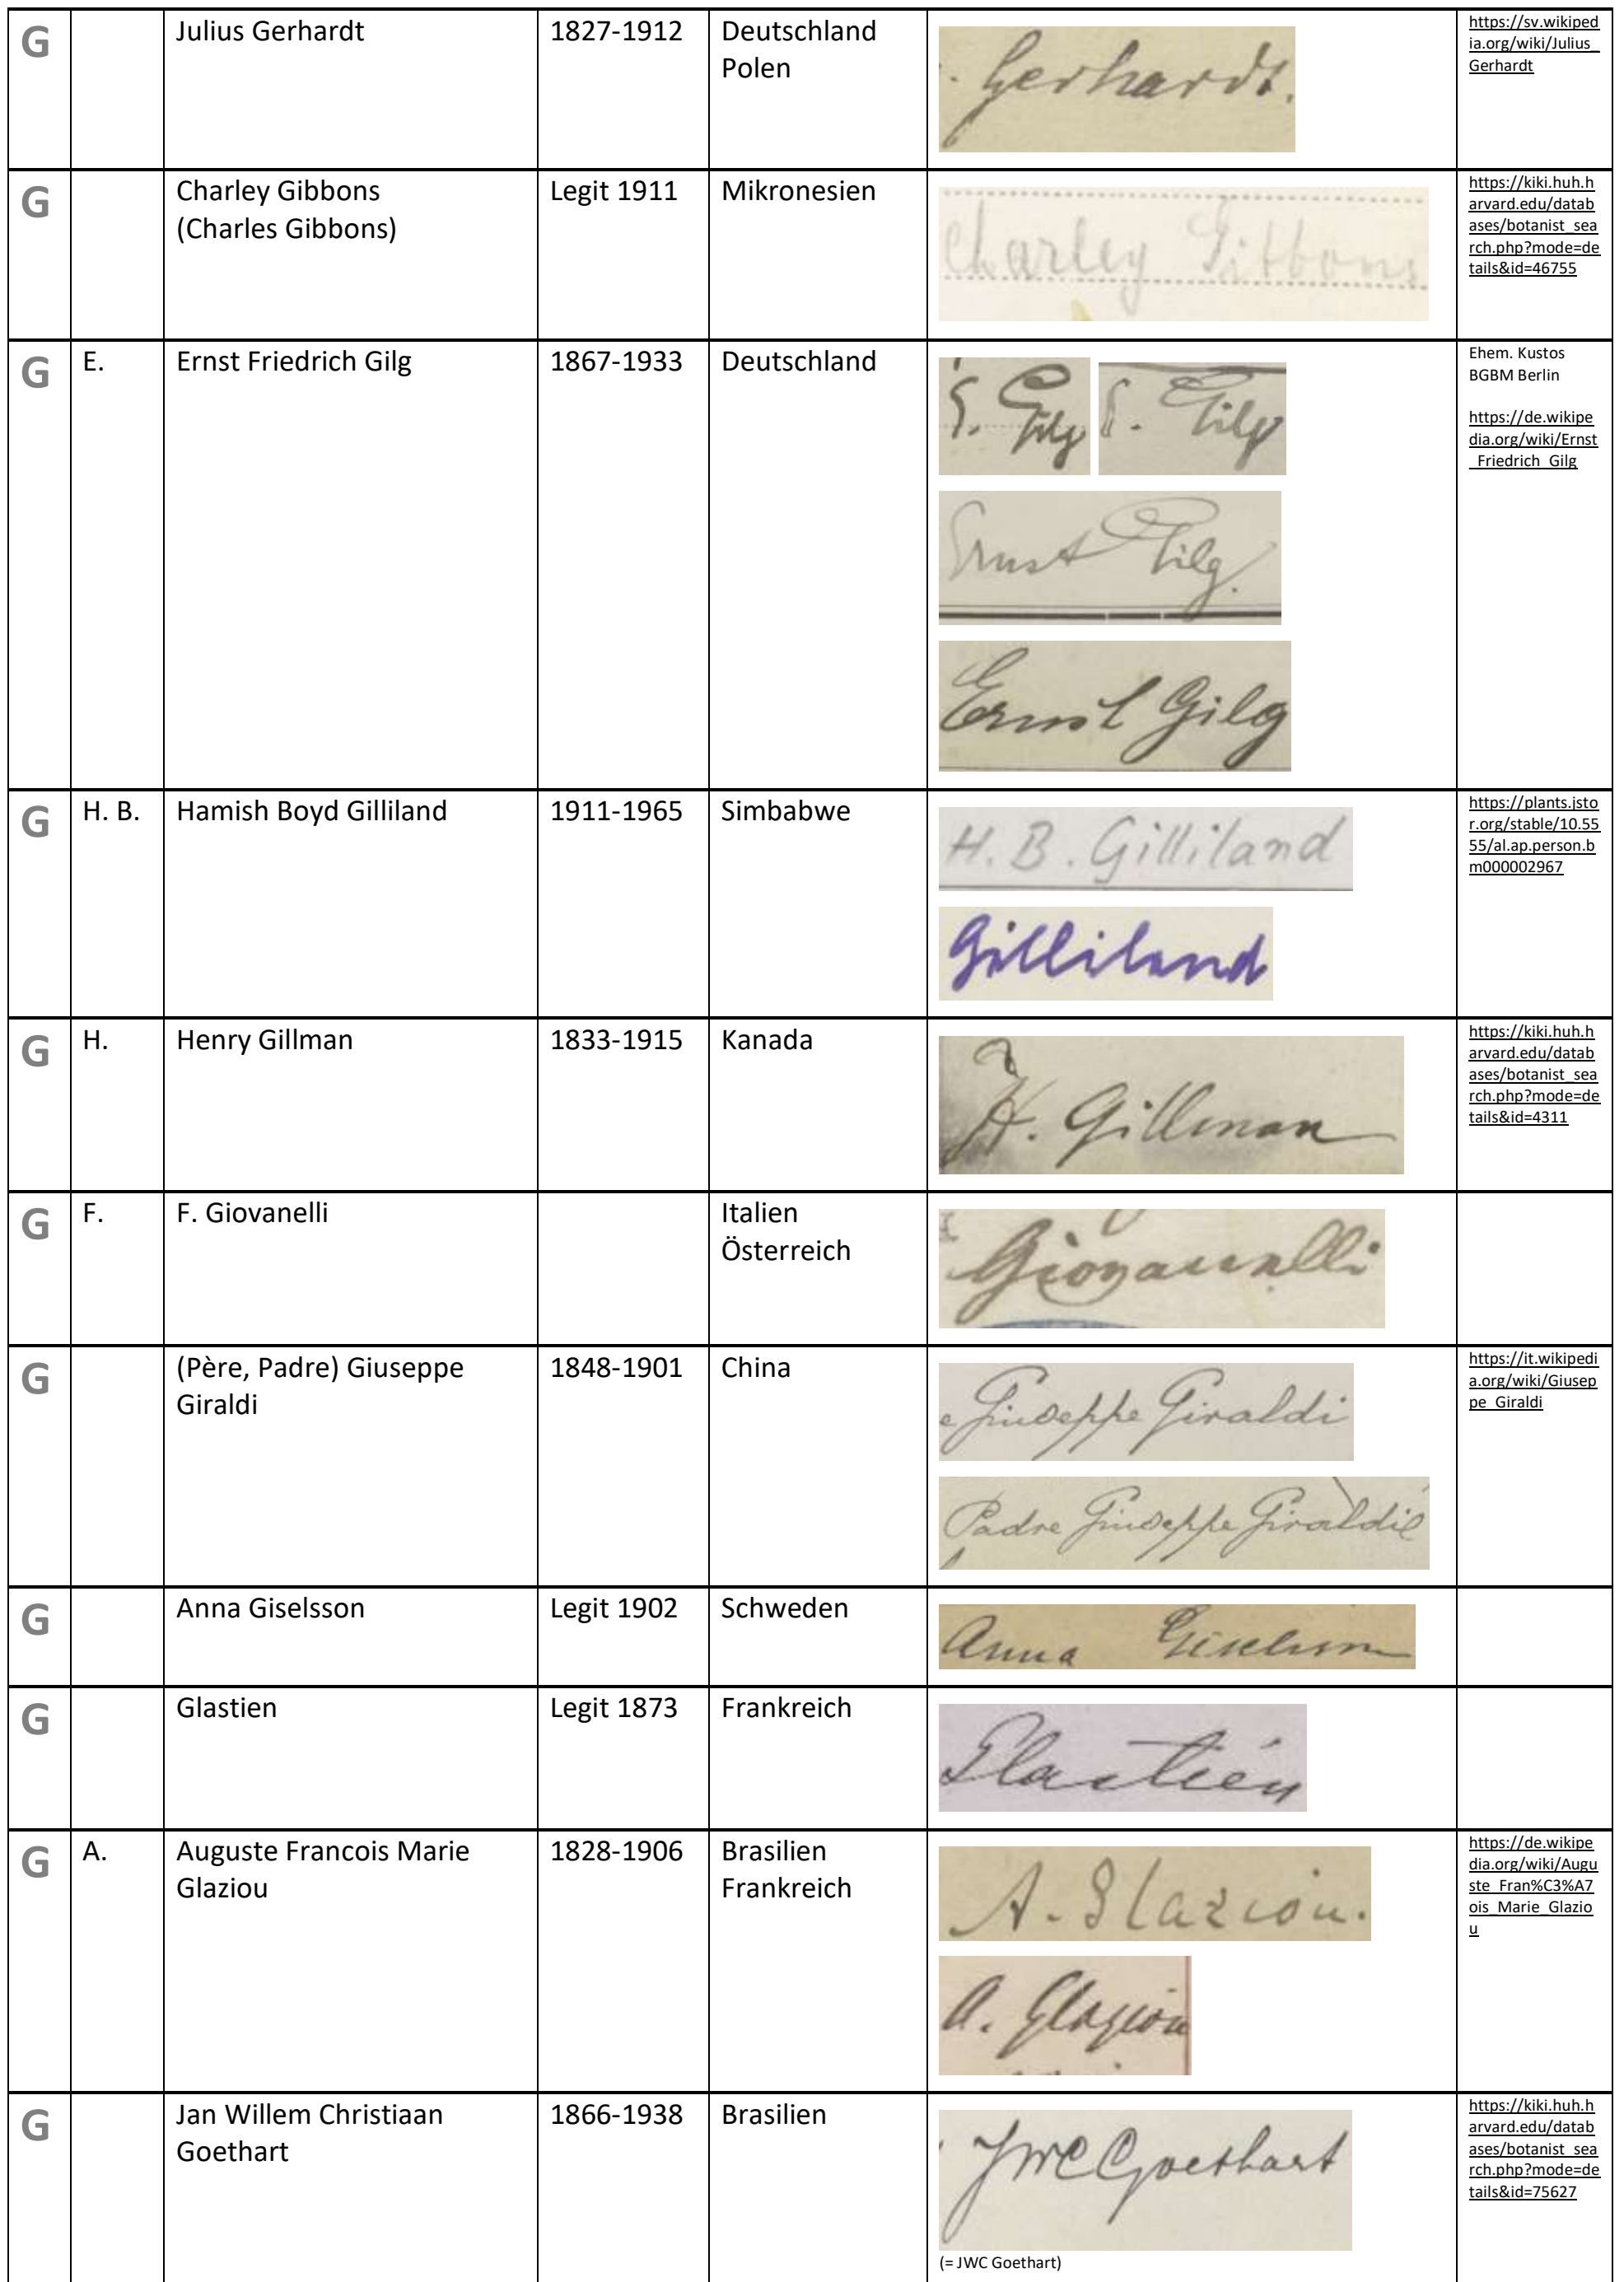 G Julius Gerhardt 1827-1912 Deutschland
Polen
Gerhardt.
https://sv.wikiped
ia.org/wiki/Julius_
Gerhardt
G Charley Gibbons Legit 1911 Mikronesien
(Charles Gibbons)
Charley Gibbons
https://kiki.huh.h
arvard.edu/datab
ases/botanist_sea
rch.php?mode=de
tails&id=46755
G E. Ernst Friedrich Gilg 1867-1933 Deutschland
E. Gilg E. Gilg
Ernst Gilg.
Ernst Gilg
Ehem. Kustos
BGBM Berlin
https://de.wikipe
dia.org/wiki/Ernst
_Friedrich_Gilg
G H. B. Hamish Boyd Gilliland 1911-1965 Simbabwe
H. B. Gilliland
Gilliland
https://plants.jsto
r.org/stable/10.55
55/al.ap.person.b
m000002967
G H. Henry Gillman 1833-1915 Kanada
H. Gillman
https://kiki.huh.h
arvard.edu/datab
ases/botanist_sea
rch.php?mode=de
tails&id=4311
G F. F. Giovanelli Italien
Österreich
Giovanelli
G (Père, Padre) Giuseppe 1848-1901 China
Giraldi
e Giuseppe Giraldi
Padre Giuseppe Giraldi
https://it.wikipedi
a.org/wiki/Giusep
pe_Giraldi
G Anna Giselsson Legit 1902 Schweden
Anna Giselsson
G Glastien Legit 1873 Frankreich
Glastien
G A. Auguste Francois Marie 1828-1906 Brasilien
Glaziou Frankreich
A. Glaziou.
A. Glaziou
https://de.wikipe
dia.org/wiki/Augu
ste_Fran%C3%A7
ois_Marie_Glazio
u
G Jan Willem Christiaan 1866-1938 Brasilien
Goethart
JWC Goethart
(= JWC Goethart)
https://kiki.huh.h
arvard.edu/datab
ases/botanist_sea
rch.php?mode=de
tails&id=75627